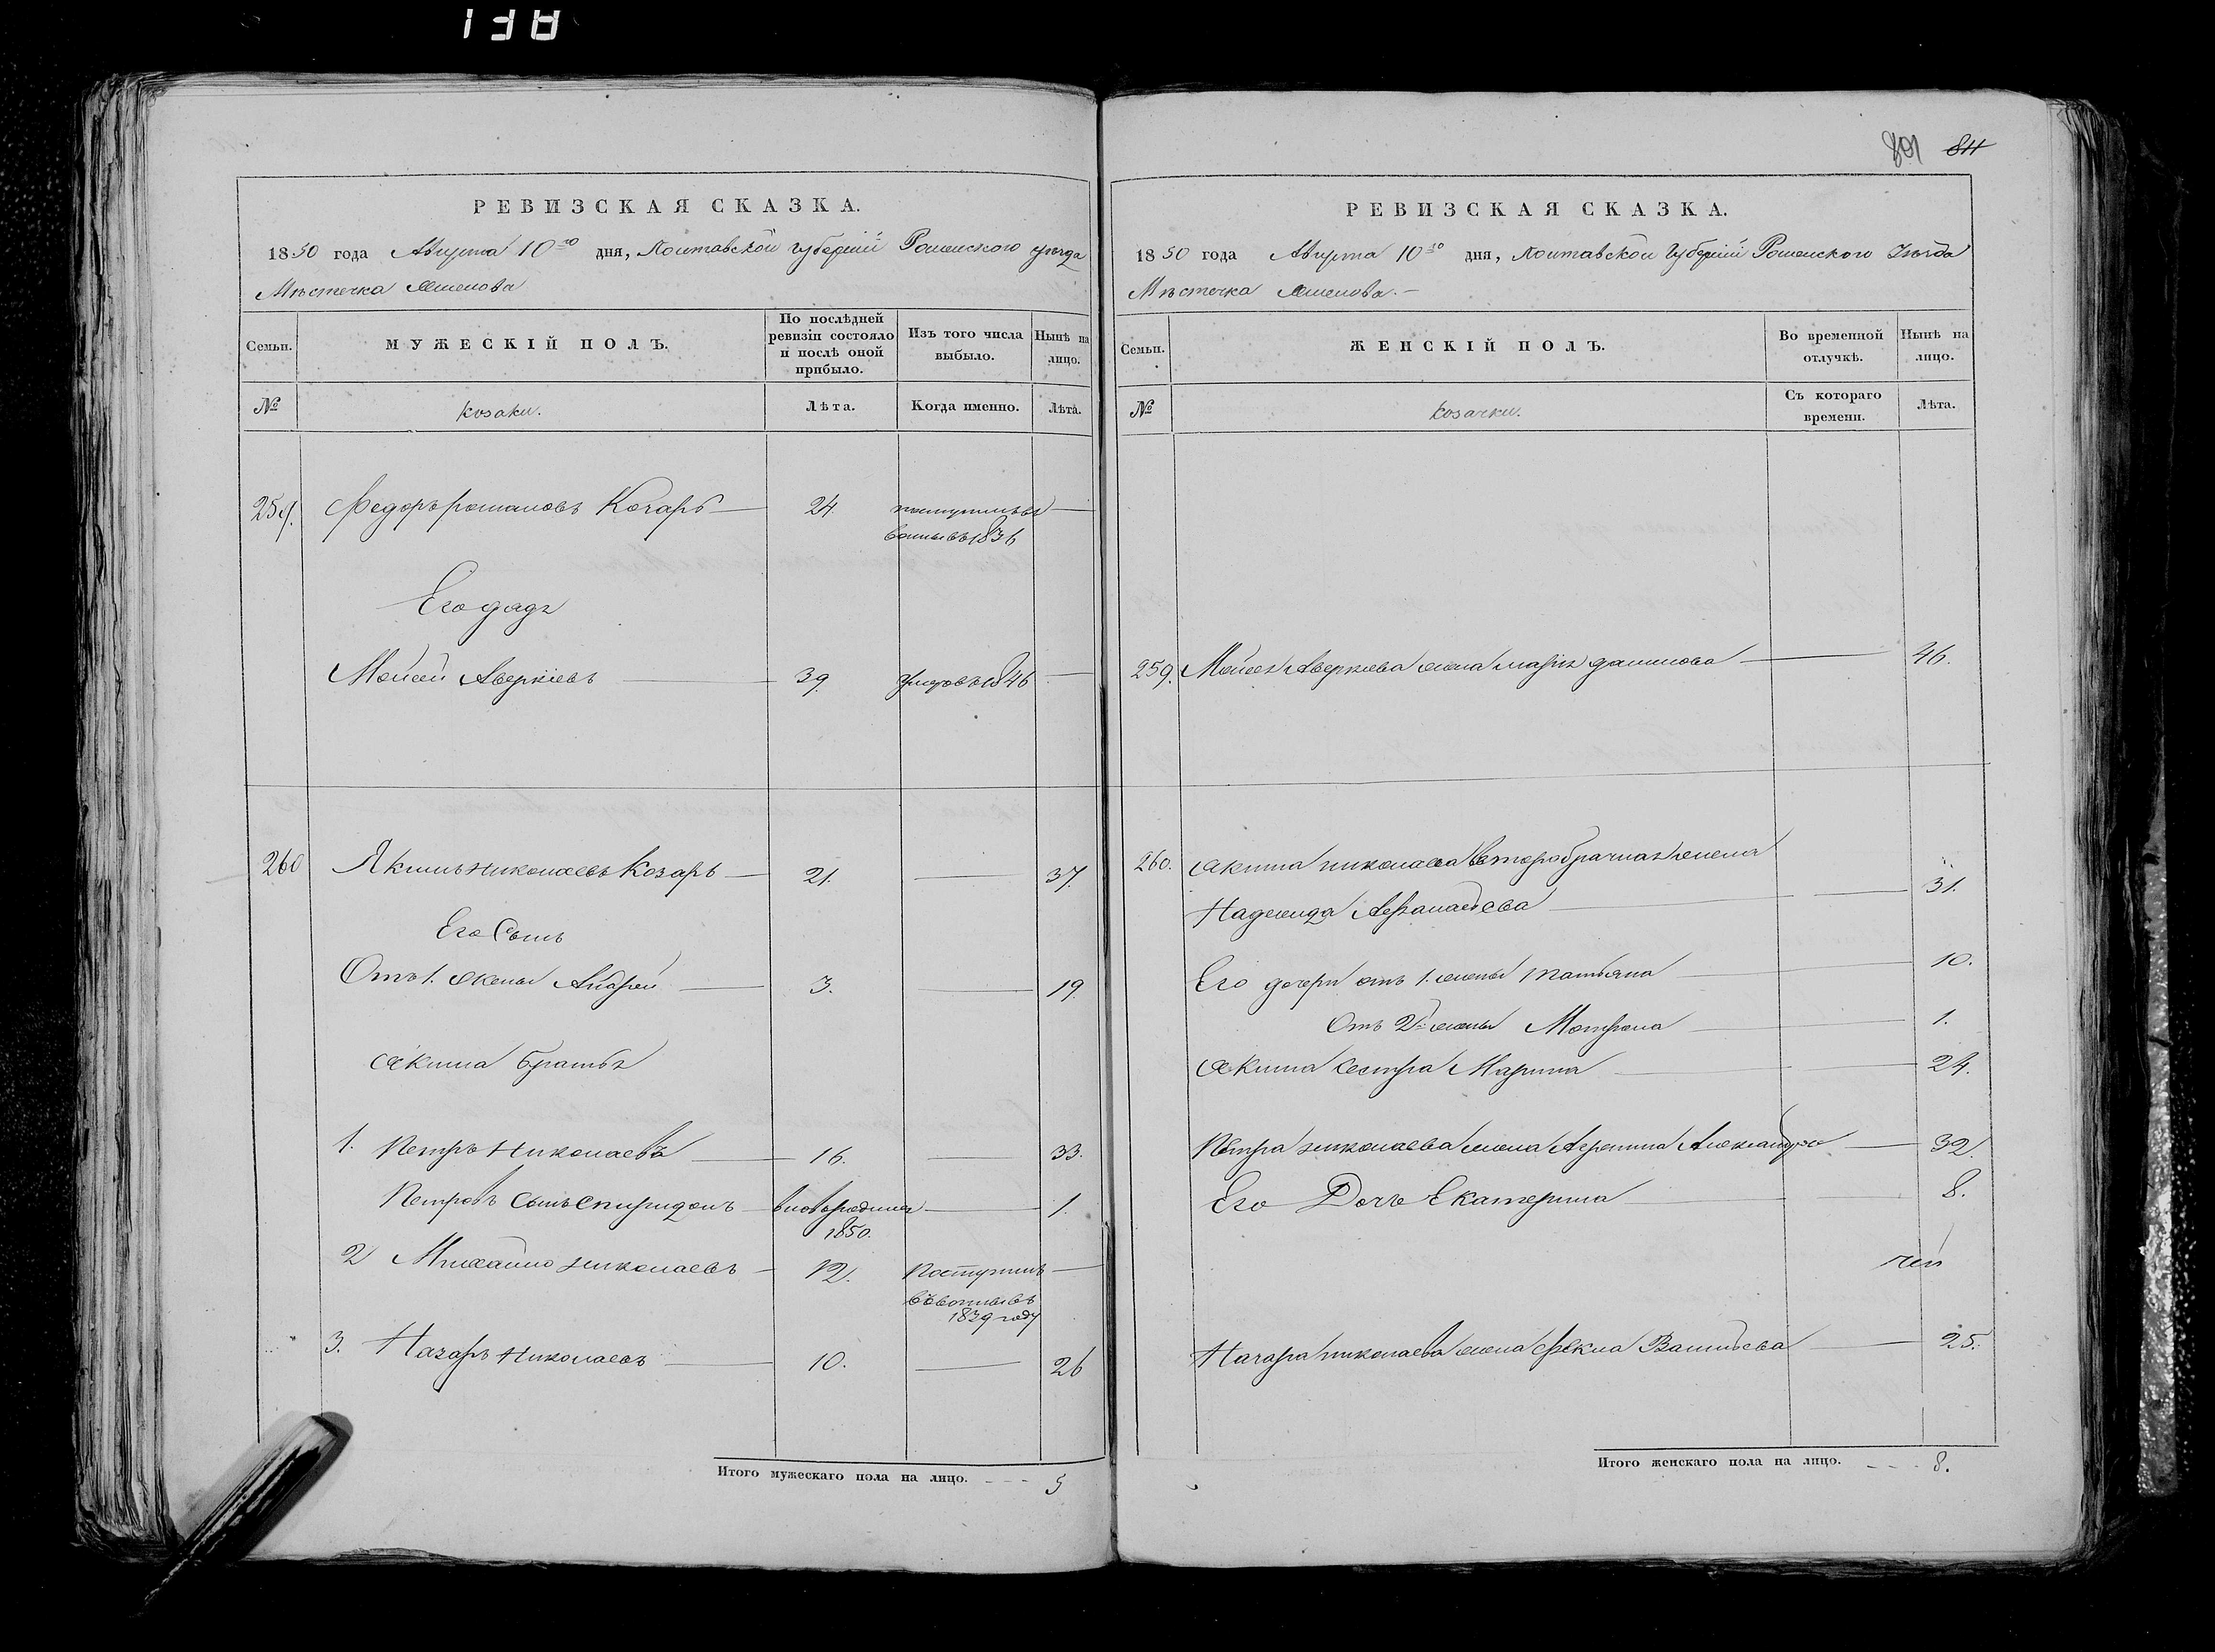 138
РЕВИЗСКАЯ СКАЗКА.
1850 года Августа 10го дня, Полтавской Губерніи Роменского уѣзда
Мѣстечка
Семьи.
МУЖЕСКІЙ ПОЛЪ.
По послѣдней ревизіи состояло и послѣ оной прибыло.
Изъ того числа выбыло.
Нынѣ на лицо.
№
козаки.
Лѣта.
Когда именно.
Лѣта.
259. Федоръ романовъ 24. 1836
Его дядя
Мойсей Аверкіевъ 39. умеръ въ 1846
260 Якимъ николаевъ Козаръ 21. 37.
Его Сынъ
Отъ 1. жены Андрей 3. 19.
Якима братья
1. Петръ Николаевъ 16. 33.
Петровъ сынъ спиридонъ вновьрожденъ 1.
1850.
2 Михайло николаевъ 12. Поступилъ
1839 году
3. Назаръ Николаевъ 10. 26
Итого мужескаго пола на лицо. 5
801 811
РЕВИЗСКАЯ СКАЗКА.
1850 года Августа 10го дня, Полтавской Губерніи Роменского Уѣзда
Мѣстечка
Семьи.
ЖЕНСКІЙ ПОЛЪ.
Во временной отлучкѣ.
Нынѣ на лицо.
№
козачки.
Съ котораго времени.
Лѣта.
259. Мойсея Аверкіева жена марія данилова 46.
260. Якима николаева второбрачная жена
Надежда Афанасьева 31.
Его дочери отъ 1. жены татьяна 10.
Отъ 2й жены Мотрона 1.
Якима сестра Марина 24.
Петра николаева жена Агрепина Александрова 32.
Его Дочь Екатерина 8.
Назара николаева жена фекла Васильева 25.
Итого женскаго пола на лицо. 8.